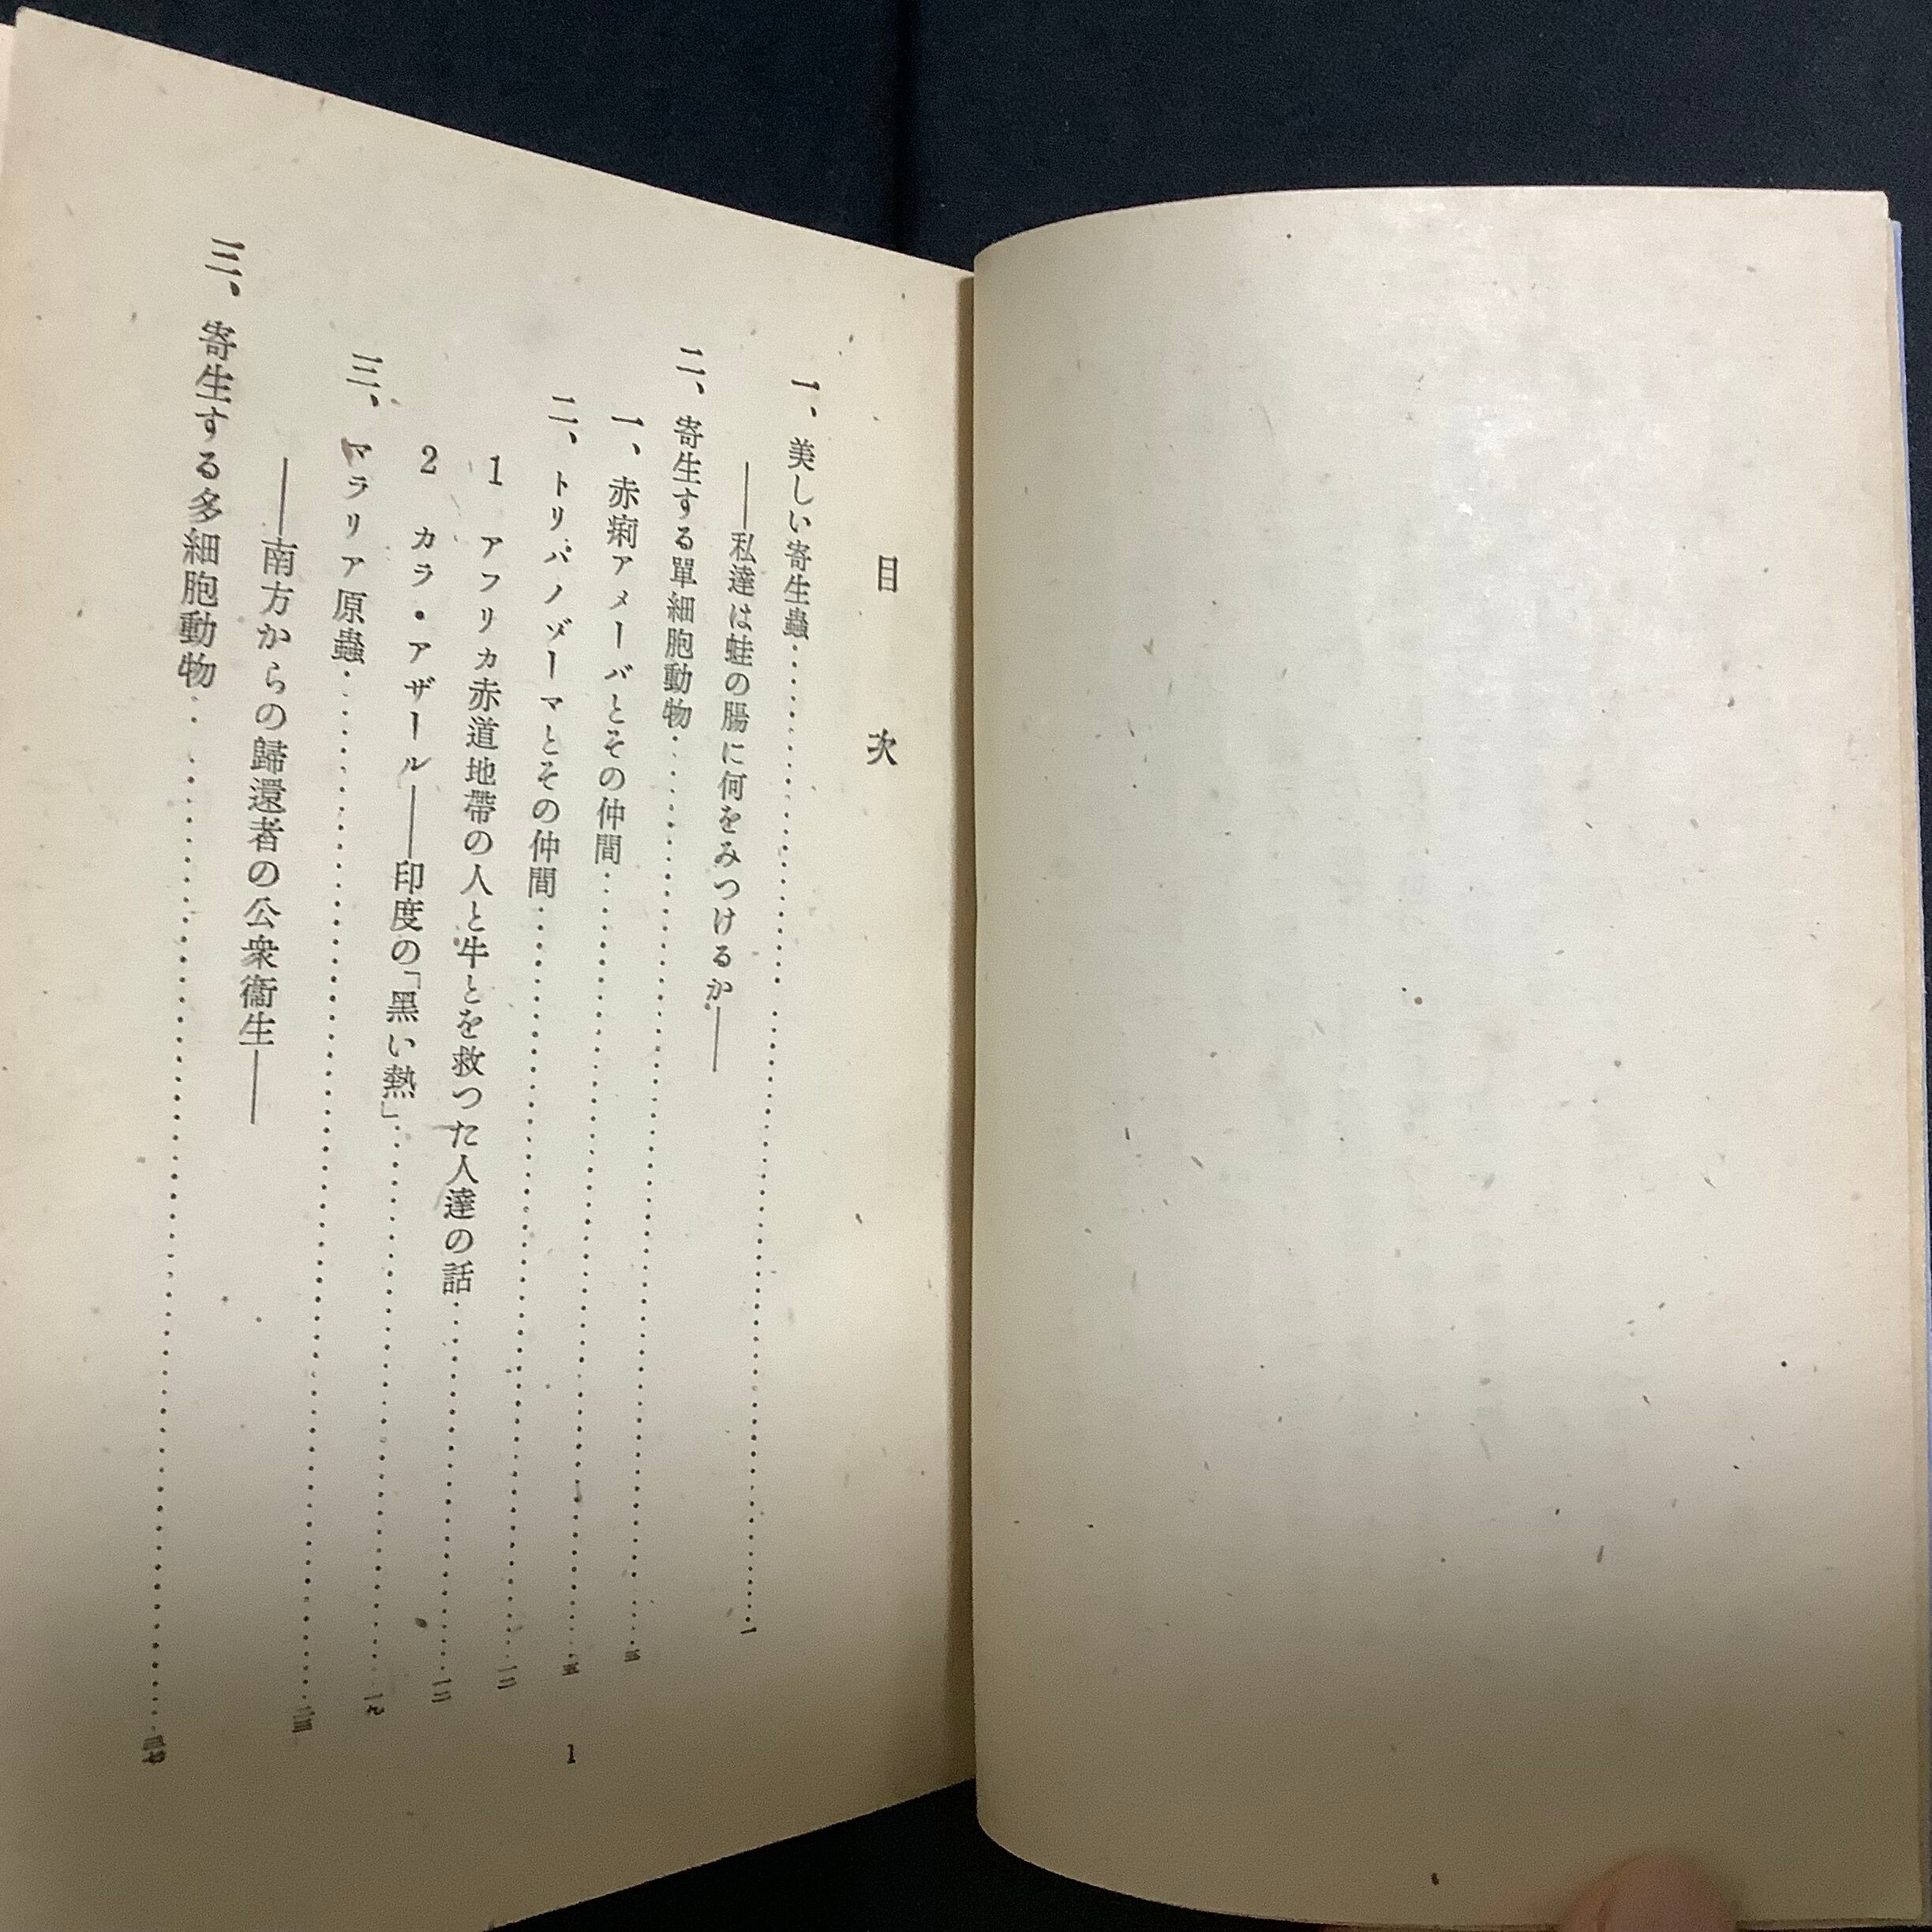 目次
一、美しい寄生蟲……一
――私達は蛙の腸に何をみつけるか――
二、寄生する單細胞動物……
一、赤痢アメーバとその仲間……
二、トリパノゾーマとその仲間……一二
1 アフリカ赤道地帶の人と牛とを救つた人達の話……一二
2 カラ・アザール――印度の「黑い熱」……一九
三、マラリア原蟲……
――南方からの歸還者の公衆衞生――
三、寄生する多細胞動物……
1